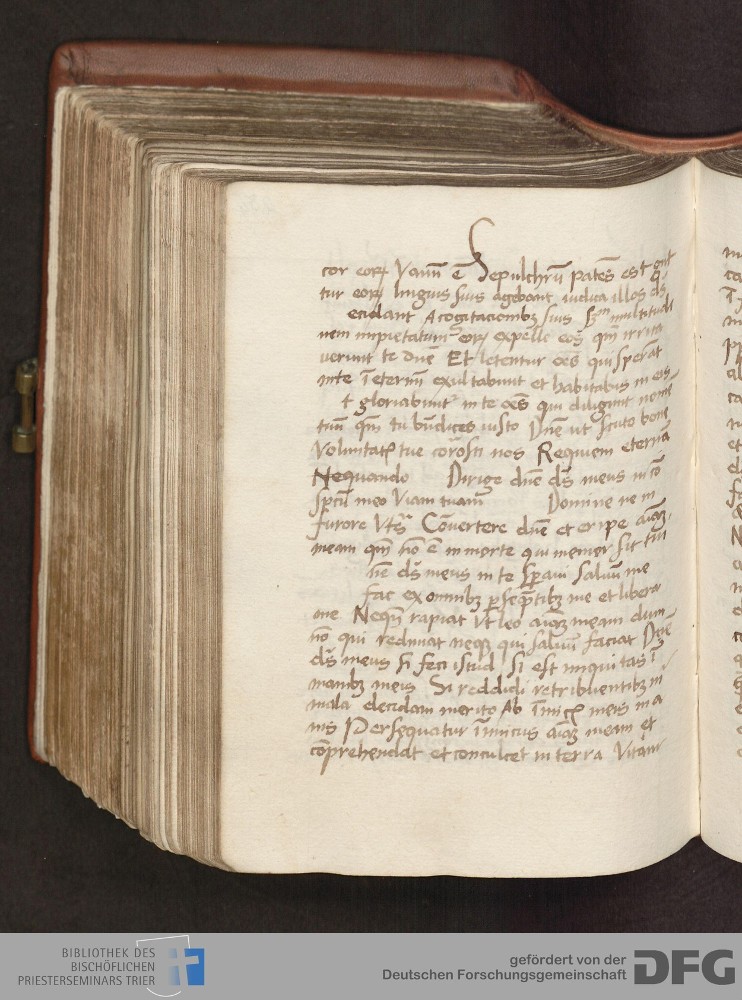 cor eoꝝ Vanū ē Sepulchrū patēs est gutt
tur eoꝝ linguis suis agebant iudica illos dˢ
ecidant A cogitacionibꝫ suis Sᵈᵐ multitudi
nem impietatum eoꝝ expelle eos qm̄ irrita
verunt te dn̄e Et letentur oēs qui sperāt
in te ī eternū exultabunt et habitabis in eis
t gloriabunt᷑ in te oēs qui diligunt nomē
tuū qm̄ tu bn̄dices iusto Dn̄e ut scuto bone
Voluntatis tue coronasti nos Requiem eternā
Nequando Dirige dn̄e ds̄ meus in cō
spctū meo viam tuam Domine ne in
furore Vts̄ Cōvertere dn̄e et eripe aīaꝫ
meam qm̄ nō ē in morte qui memor sit tui
ne ds̄ meus in te spaui saluū me
fac ex omnibꝫ psequētibꝫ me et libera
me Nequā rapiat Vt leo aīaꝫ meam dum
nō qui redimat neqꝫ qui saluū faciat Dn̄e
ds̄ meus si feci istud Si est iniquitas ī
manibꝫ meis Si reddidi retribuentibꝫ m
mala decidam merito Ab īimicis meis ina
nis Persequatur īimicus aīaꝫ meam et
cōprehendat et conculcet in terra Vitam
BIBLIOTHEK DES
BISCHÖFLICHEN
PRIESTERSEMINARS TRIER
gefördert von der
Deutschen Forschungsgemeinschaft
DFG